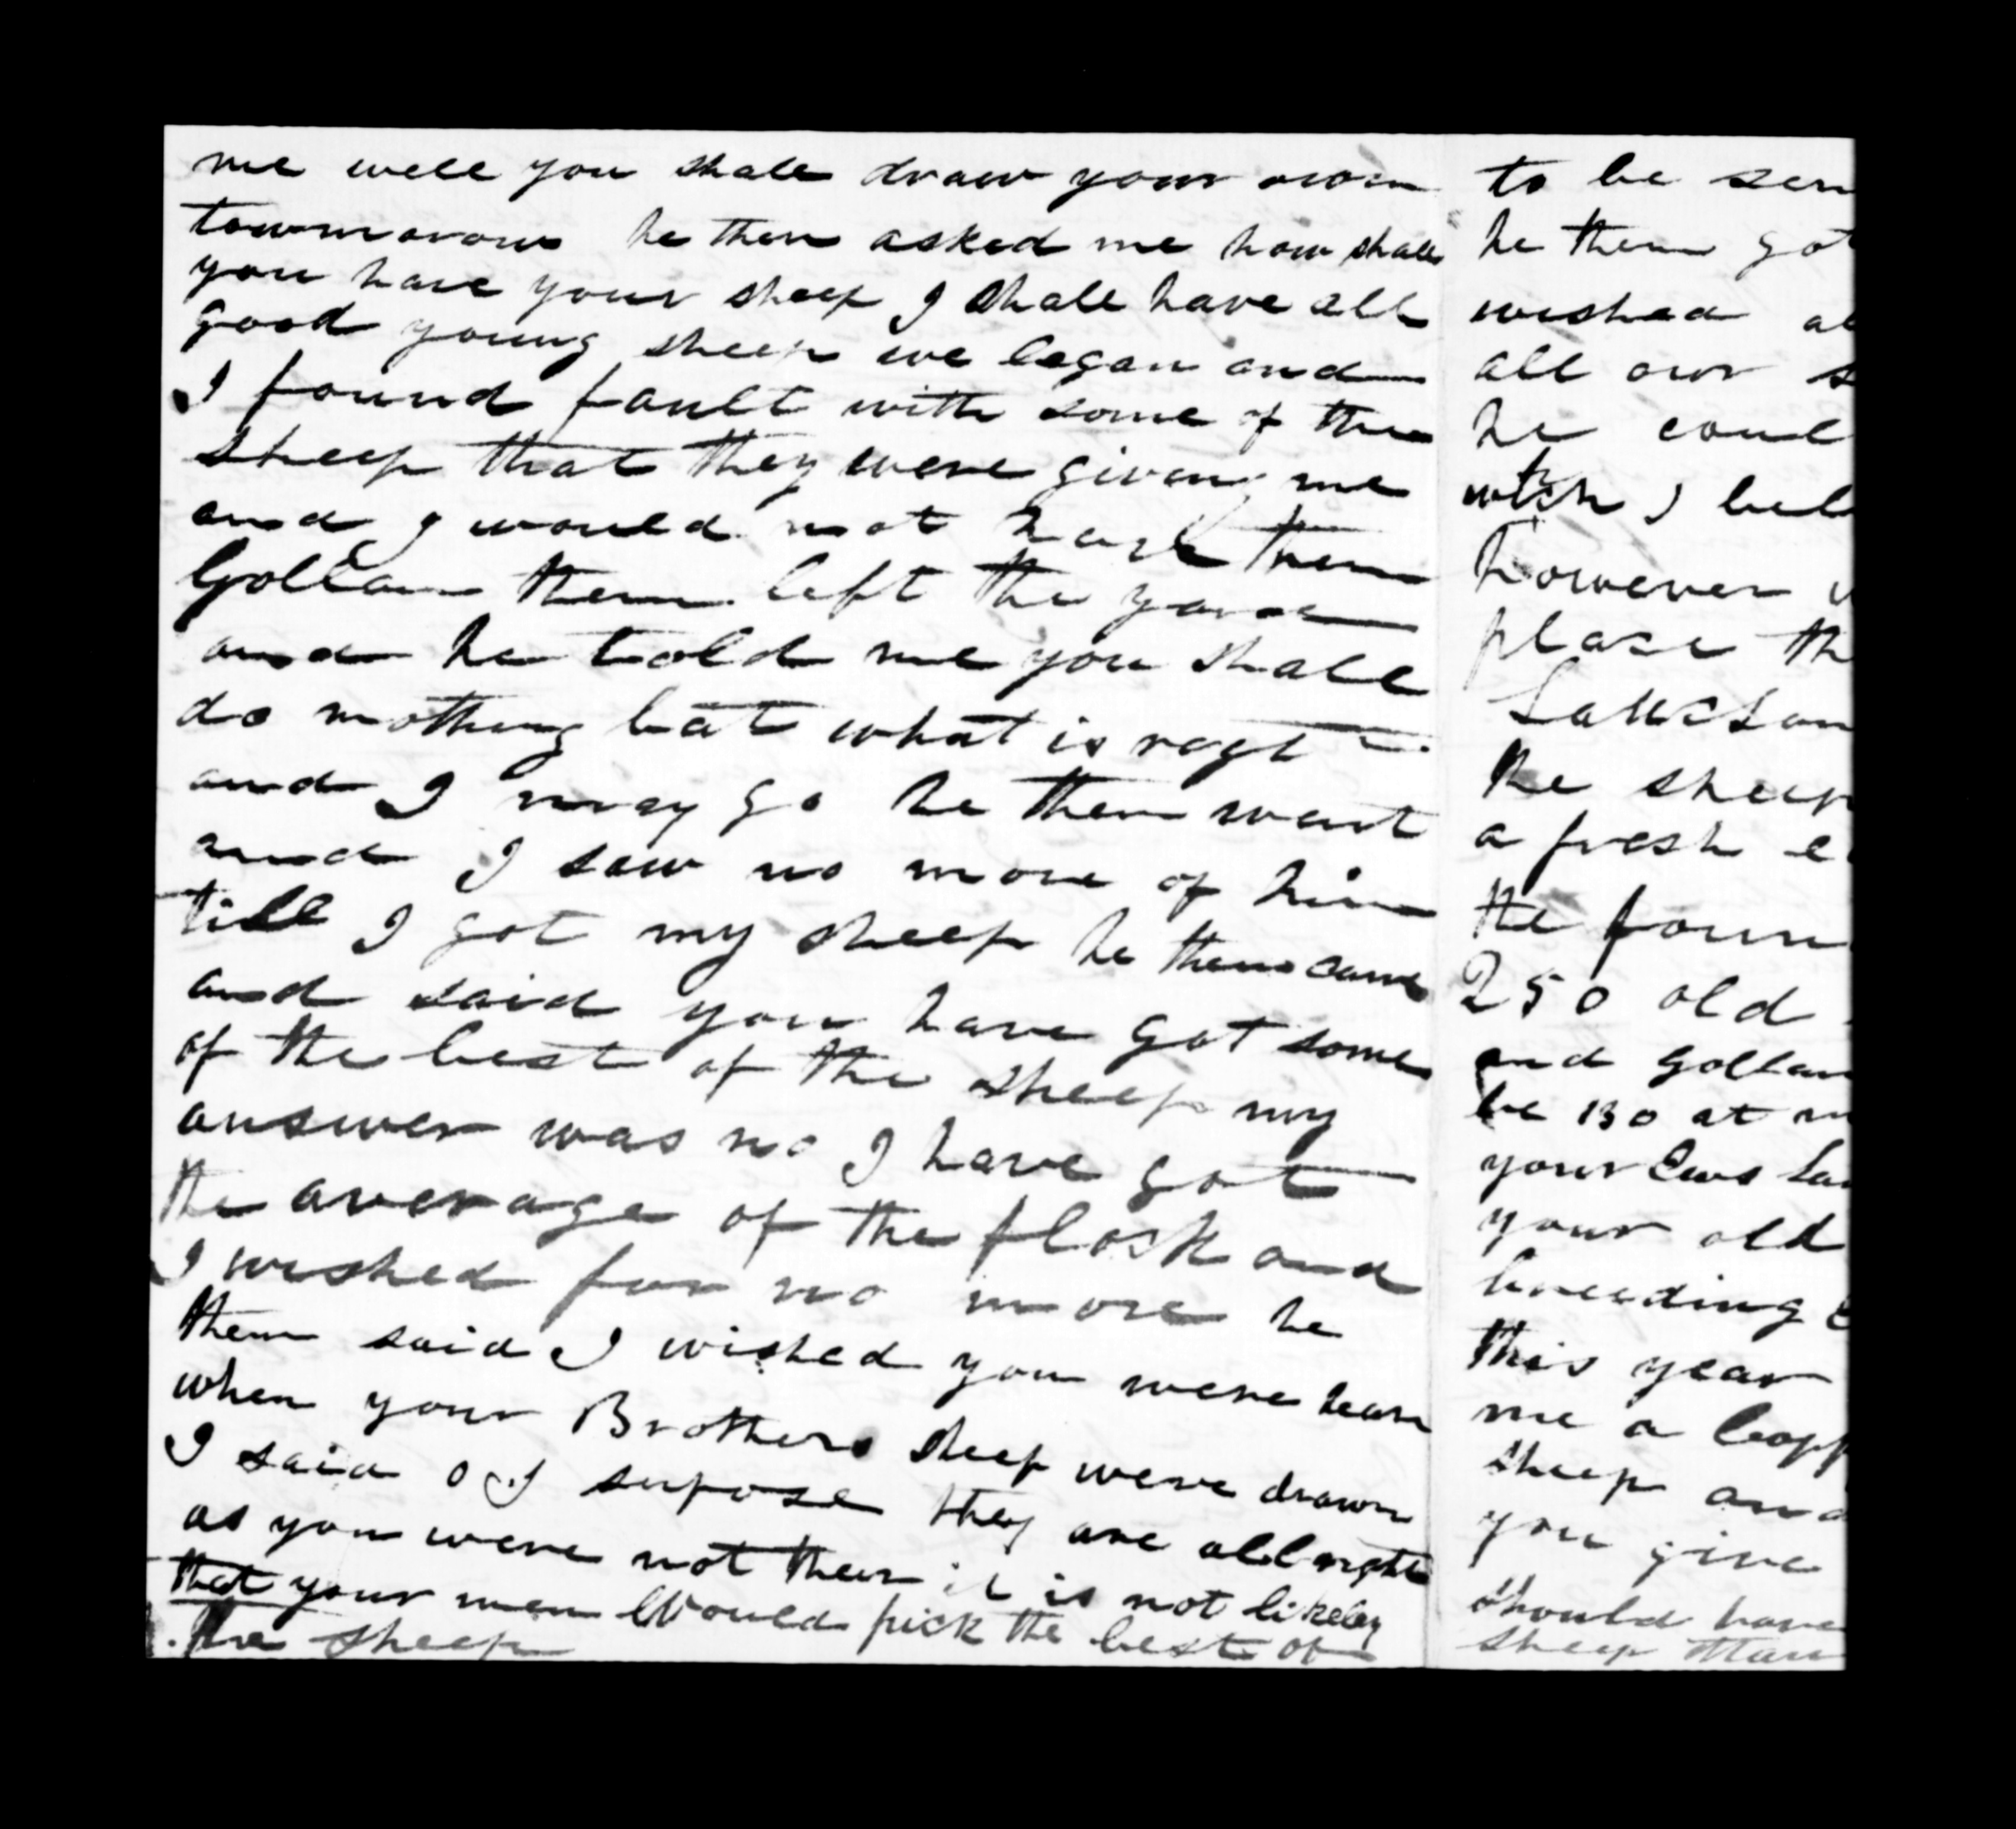 me well you shall draw your own
towmorow he then asked me how shall
you have your sheep I shall have all
good young sheep we began and
I found fault with some of the
sheep that they were giveng me
and I would not have them
Gollan then left the yard
and he told me you shall
do nothing bat what is reght
and I may go he then went
and I saw no more of him
till I got my sheep he then came
and said you have got some
of the best of the sheep my
answer was no I have got
the average of the flosk and
I wished for no more he
then said I wished you were hear
when your Brothers sheep were drawn
I said o I supose they are all reght
as you were not thear it is not likeley
that your men Would pick the best of
the sheep
to be
he then got
wished
all our
he
wish I
however
plase
the sheep
a fresh
the
250 old
and Gollan
be 130 at
your Ews
your old
breeding
this year
me a
sheep and
you give
should have
sheep